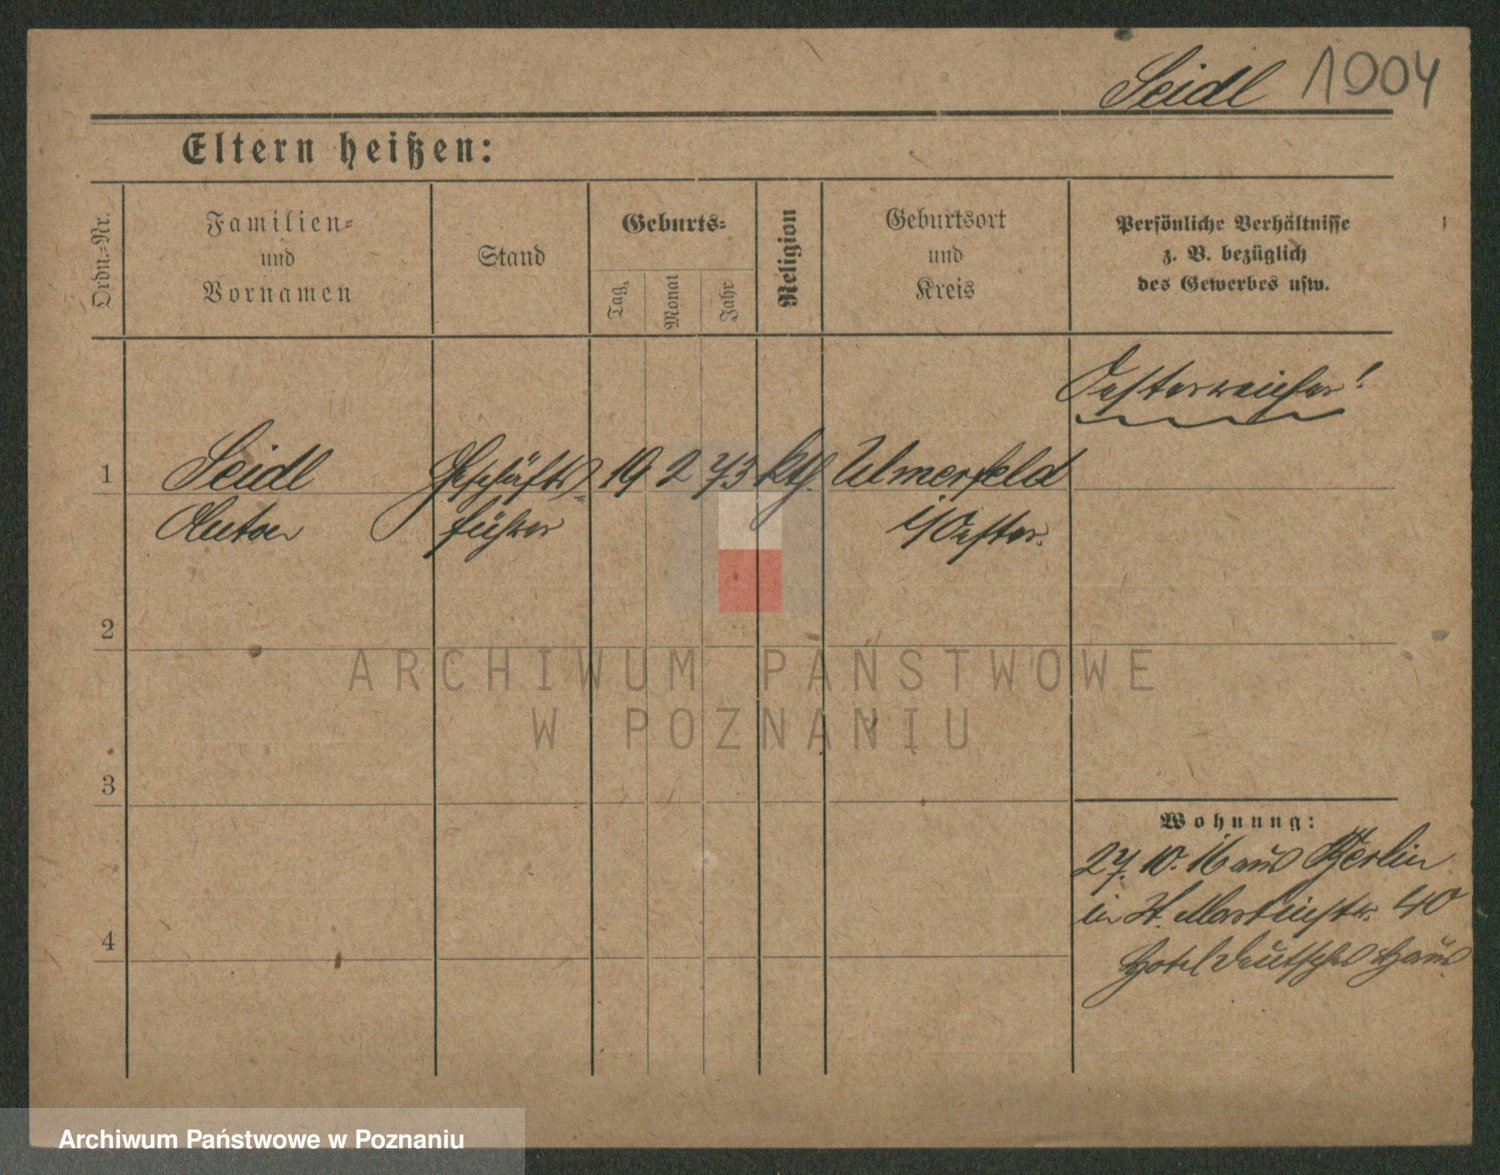 Seidl 1904
Eltern heißen:
Ordn.-Nr.
Familien-
und
Vornamen
Stand
Geburts-
Tag,
Monat
Jahr
Religion
Geburtsort
und
Kreis
Persönliche Verhältnisse
z. B. bezüglich
des Gewerbes usw.
Oesterreicher!
1 Seidl Geschäfts- 19 2 73 kth. Ulmerfeld
Anton führer i/Oester.
2
3
4
Wohnung:
27. 10. 16 aus Berlin
in St. Martinstr. 40
Hotel Deutsches Haus
ARCHIWUM PAŃSTWOWE
W POZNANIU
Archiwum Państwowe w Poznaniu